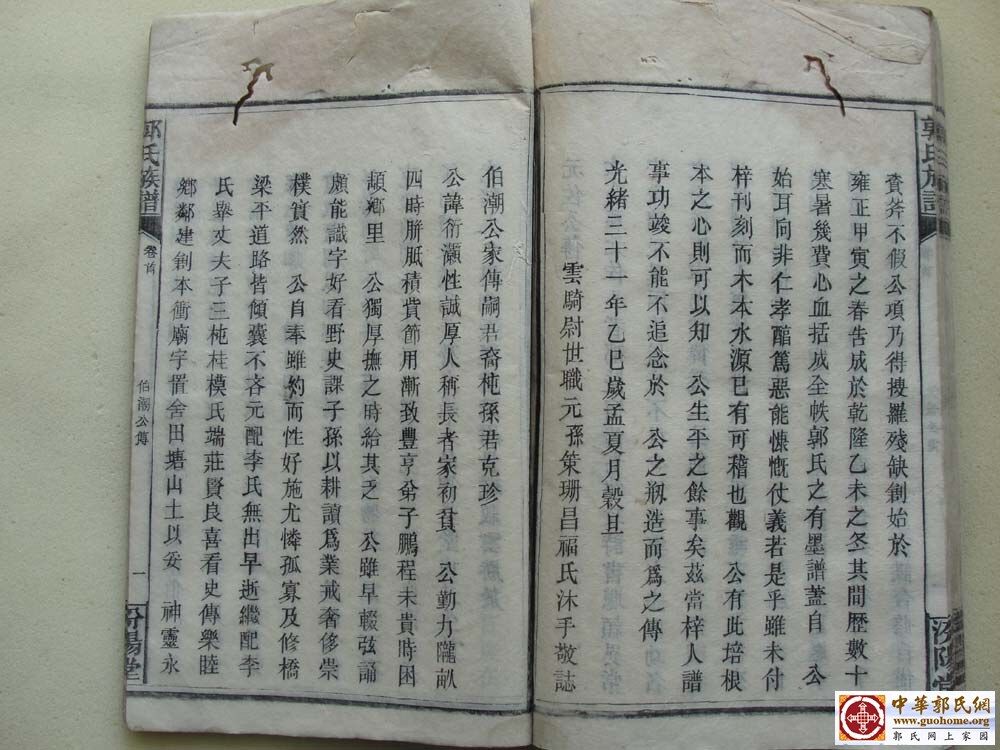 郭氏族譜
資斧不假公項乃得搜羅殘缺創始於
雍正甲寅之春告成於乾隆乙未之冬其間歷數十
寒暑幾費心血括成全帙郭氏之有墨譜蓋自 公
始耳向非仁孝醞篤惡能慷慨仗義若是乎雖未付
梓刊刻而木本水源已有可稽也觀 公有此培根
本之心則可以知 公生平之餘事矣茲當梓人譜
事功竣不能不追念於 公之剏造而爲之傳
光緒三十一年乙巳歲孟夏月穀旦
雲騎尉世職元孫策珊昌福氏沐手敬誌
汾陽堂
伯潮公家傳嗣君裔杶孫君克珍
公諱衍灝性誠厚人稱長者家初貧 公勤力隴畝
四時胼胝積貲節用漸致豐亨弟子鵬程未貴時困
頗鄉里 公獨厚撫之時給其乏 公雖早輟弦誦
頗能識字好看野史課子孫以耕讀爲業戒奢侈崇
樸實然 公自奉雖約而性好施尤憐孤寡及修橋
梁平道路皆傾囊不吝元配李氏無出早逝繼配李
氏舉丈夫子三杶桂模氏端莊賢良喜看史傳樂睦
鄉鄰建創本衝廟宇置舍田塘山土以妥 神靈永
郭氏族譜
卷首
伯潮公傳
一
汾陽堂
中華郭氏網
www.guohome.org
郭氏網上家園